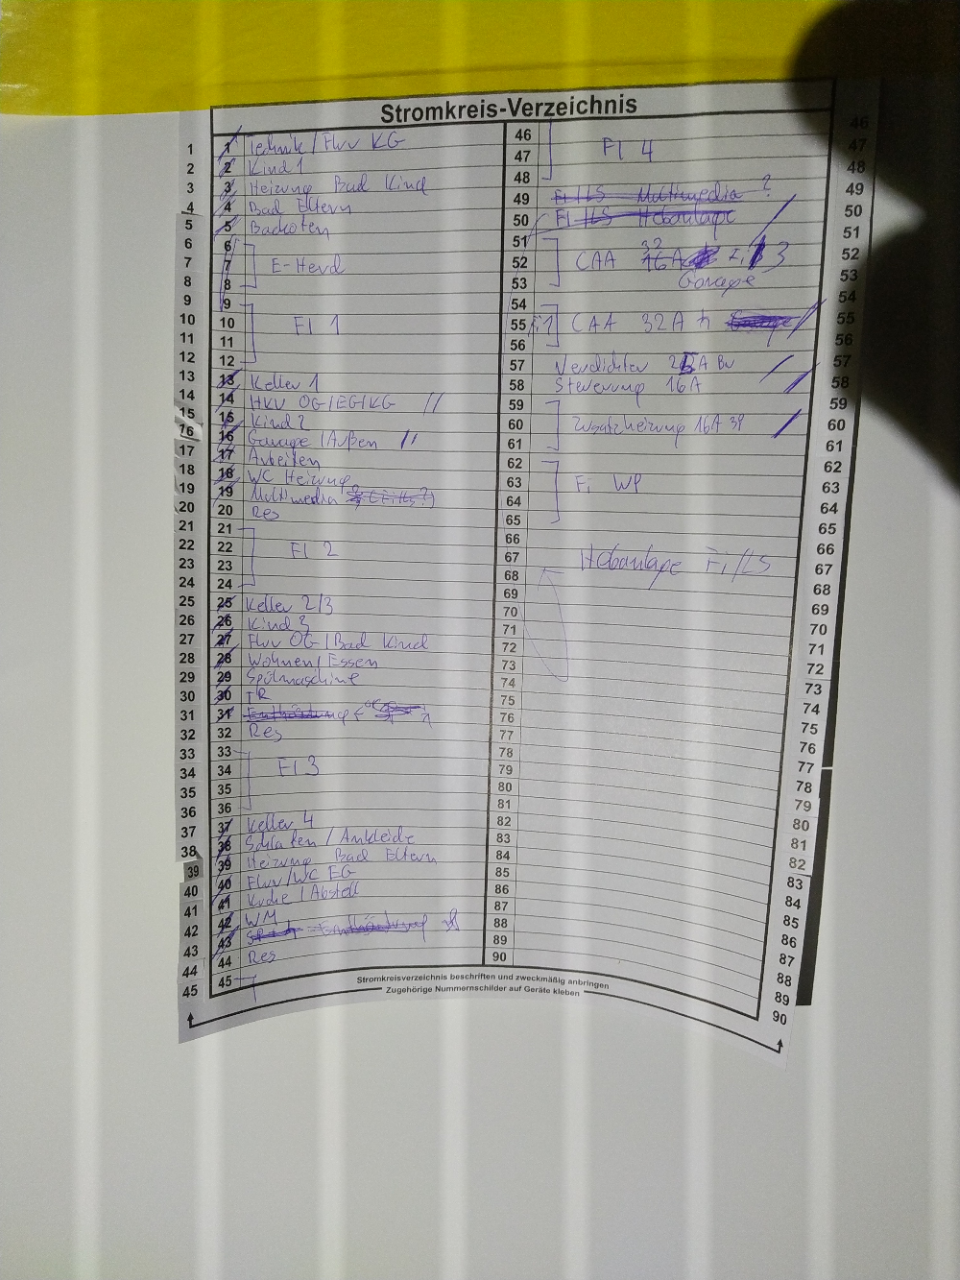 Stromkreis-Verzeichnis
1 Technik / Flur KG
2 Kind 1
3 Heizung Bad Kind
4 Bad Eltern
5 Backofen
6
7 E-Herd
8
9
10 FI 1
11
12
13 Keller 1
14 HKV OG/EG/KG //
15 Kind 2
16 Garage / Außen //
17 Arbeiten
18 WC Heizung
19 Multimedia
20 Res
21
22 FI 2
23
24
25 Keller 2/3
26 Kind 3
27 Flur OG / Bad Kind
28 Wohnen / Essen
29 Spülmaschine
30 TR
31
32 Res
33
34 FI 3
35
36
37 Keller 4
38 Schlafen / Ankleide
39 Heizung Bad Eltern
40 Flur / WC EG
41 Küche / Abstell
42 WM
43
44 Res
45
46
47 FI 4
48
49 FI/LS Multimedia ?
50 FI/LS Hebanlage
51
52 CAA 32 16A 3
53 Garage
54
55 CAA 32A
56
57 Verdichter A
58 Steuerung 16A
59
60 Zusatzheizung 16A
61
62
63 Fi WP
64
65
66
67 Hebanlage Fi/LS
68
69
70
71
72
73
74
75
76
77
78
79
80
81
82
83
84
85
86
87
88
89
90
Stromkreisverzeichnis beschriften und zweckmäßig anbringen
Zugehörige Nummernschilder auf Geräte kleben